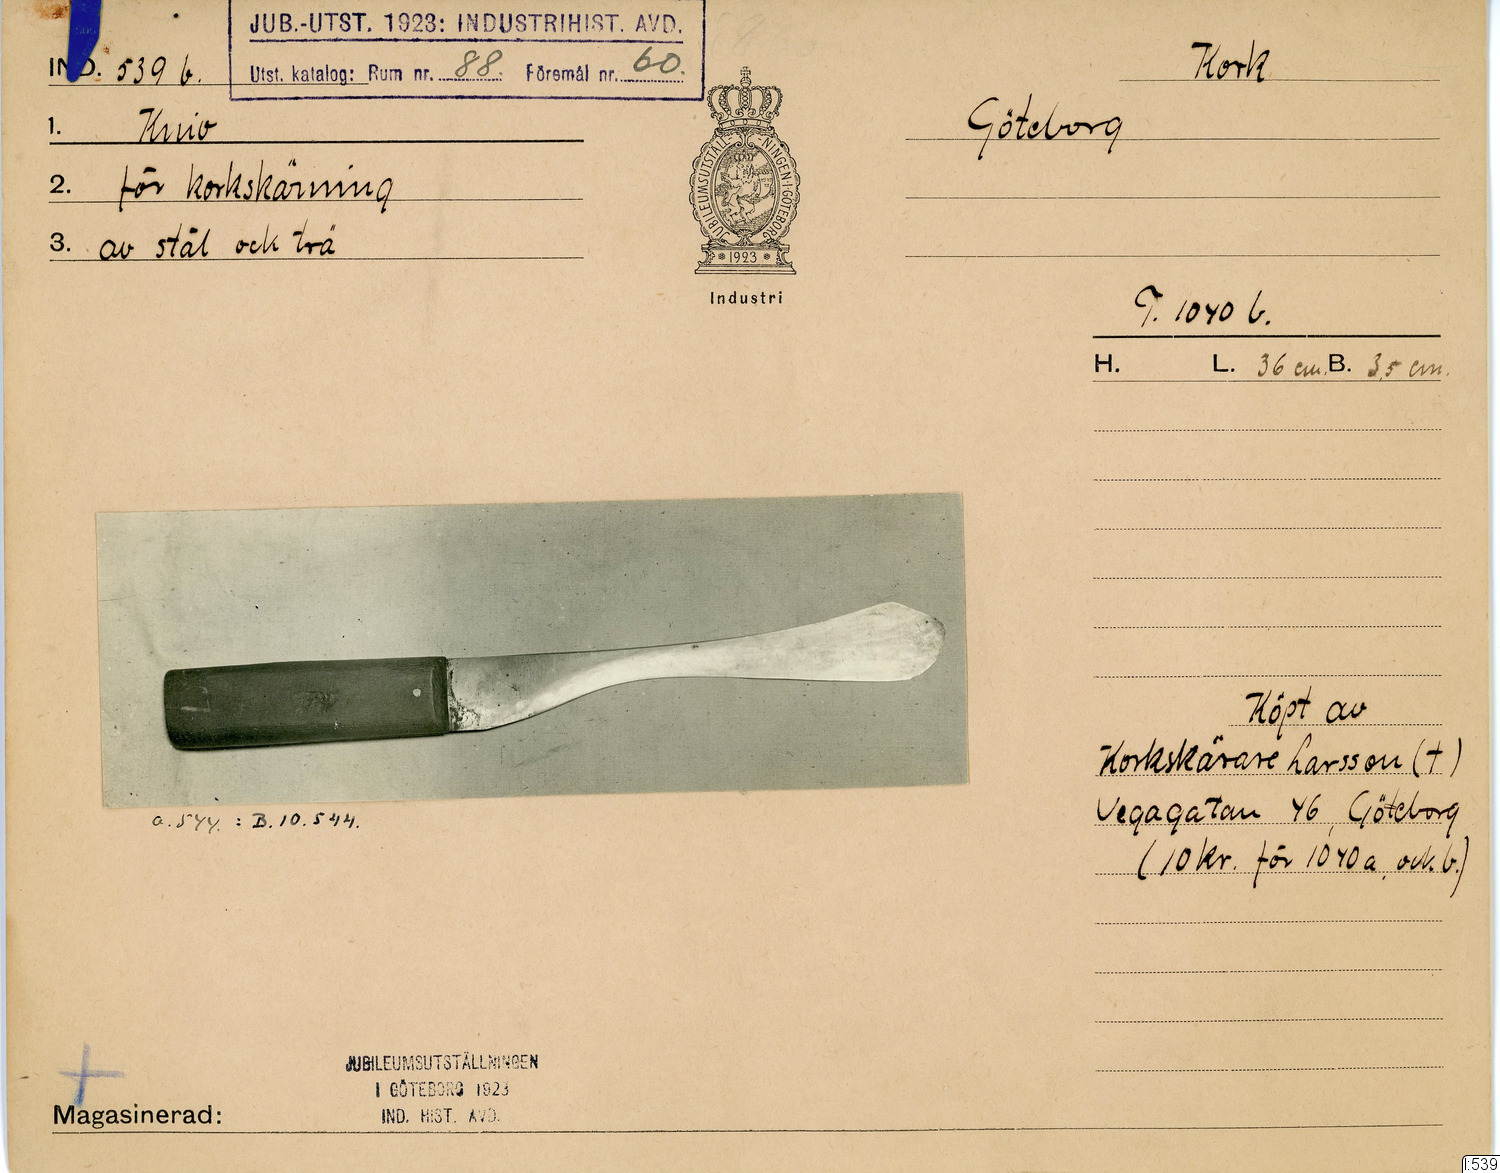 JUB.-UTST. 1923: INDUSTRIHIST. AVD.
Utst. katalog: Rum nr. 88. Föremål nr. 60.
IND. 539 b.
1. Kniv
2. för korkskärning
3. av stål och trä
JUBILEUMSUTSTÄLLNINGEN·I·GÖTEBORG
1923
Industri
Kork
Göteborg
T. 1040 b.
H. L. 36 cm. B. 3,5 cm.
Köpt av
Korkskärare Larsson (†)
Vegagatan 46, Göteborg
(10 kr. för 1040 a. och b.)
a. 544. : B. 10. 544.
JUBILEUMSUTSTÄLLNINGEN
I GÖTEBORG 1923
IND. HIST. AVD.
Magasinerad:
I:539